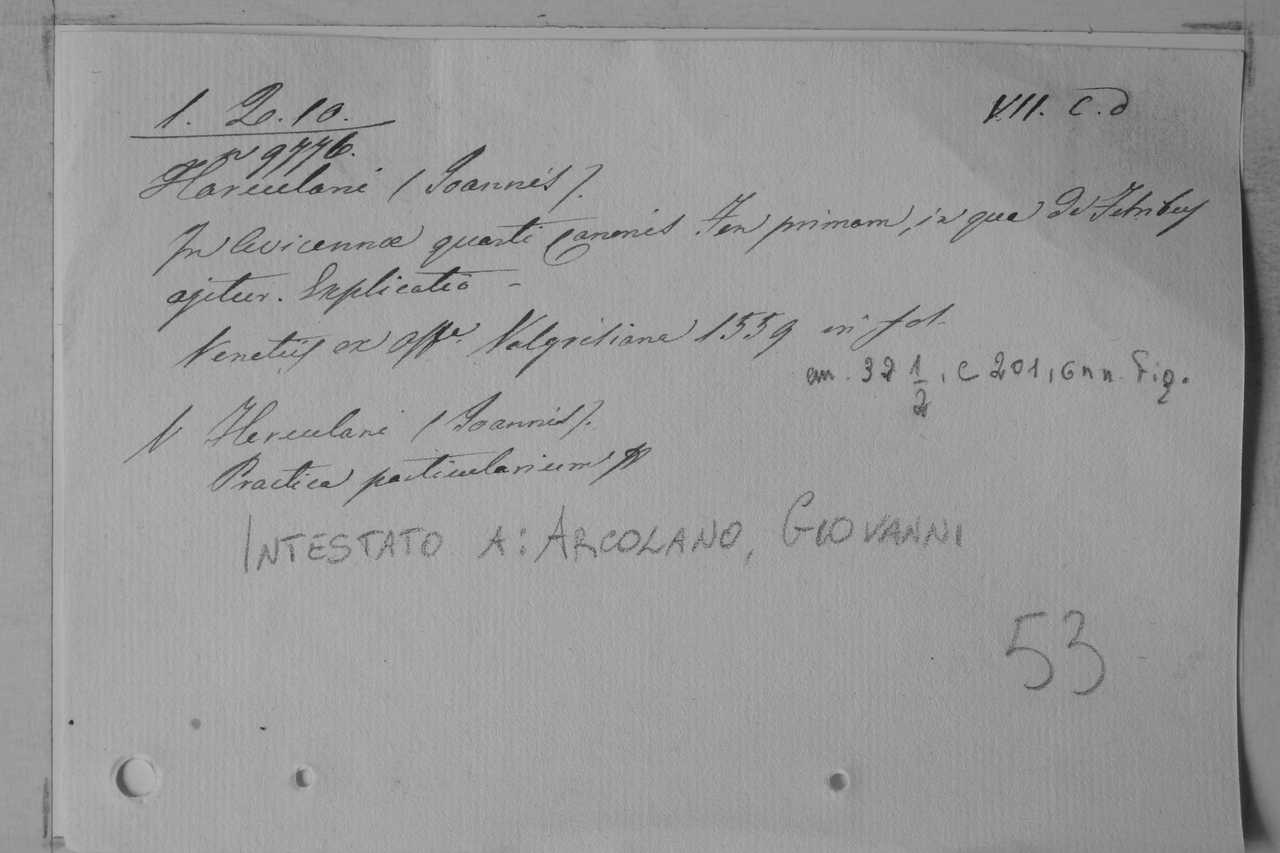 1. Q. 10.
VII. C. d
N 9776.
Herculani (Joannis).
In Avicennæ quarti Canonis Fen primam, in qua de Febribus
agitur. Explicatio -
Venetijs ex Offa. Valgrisiana 1559 in fol.
cm. 32 1/2, c 201, 6 nn. Fig.
V Herculani (Joannis).
Practica particularium
INTESTATO A: ARCOLANO, GIOVANNI
53